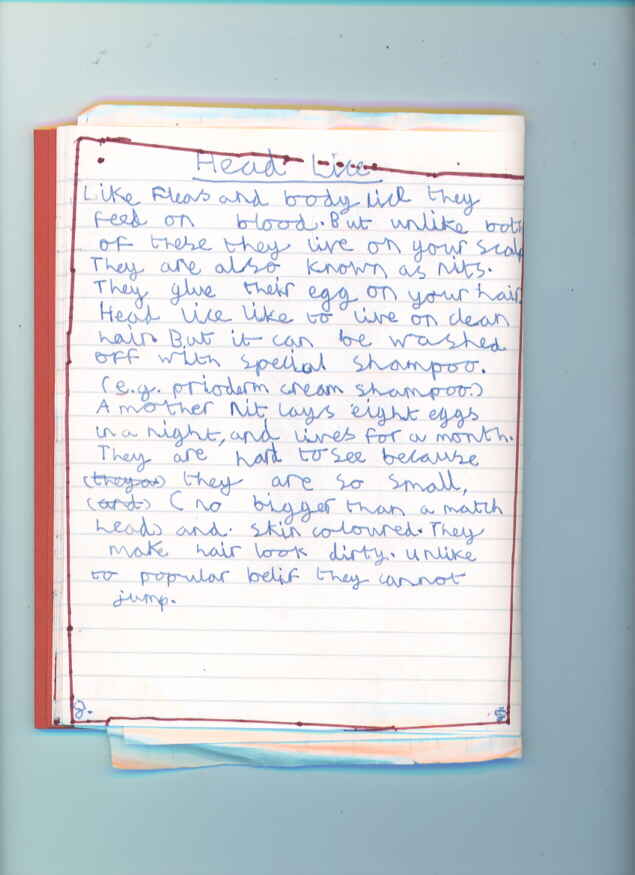 Head Lice
Like fleas and body lice they
feed on blood. But unlike both
of these they live on your scalp
They are also known as nits.
They glue their egg on your hair.
Head lice like to live on clean
hair. But it can be washed
off with special shampoo.
(e.g. prioderm cream shampoo.)
A mother nit lays eight eggs
in a night, and lives for a month.
They are hard to see because
(they a) they are so small,
(and) (no bigger than a match
head) and. skin coloured. They
make hair look dirty. unlike
to popular belif they cannot
jump.
2.